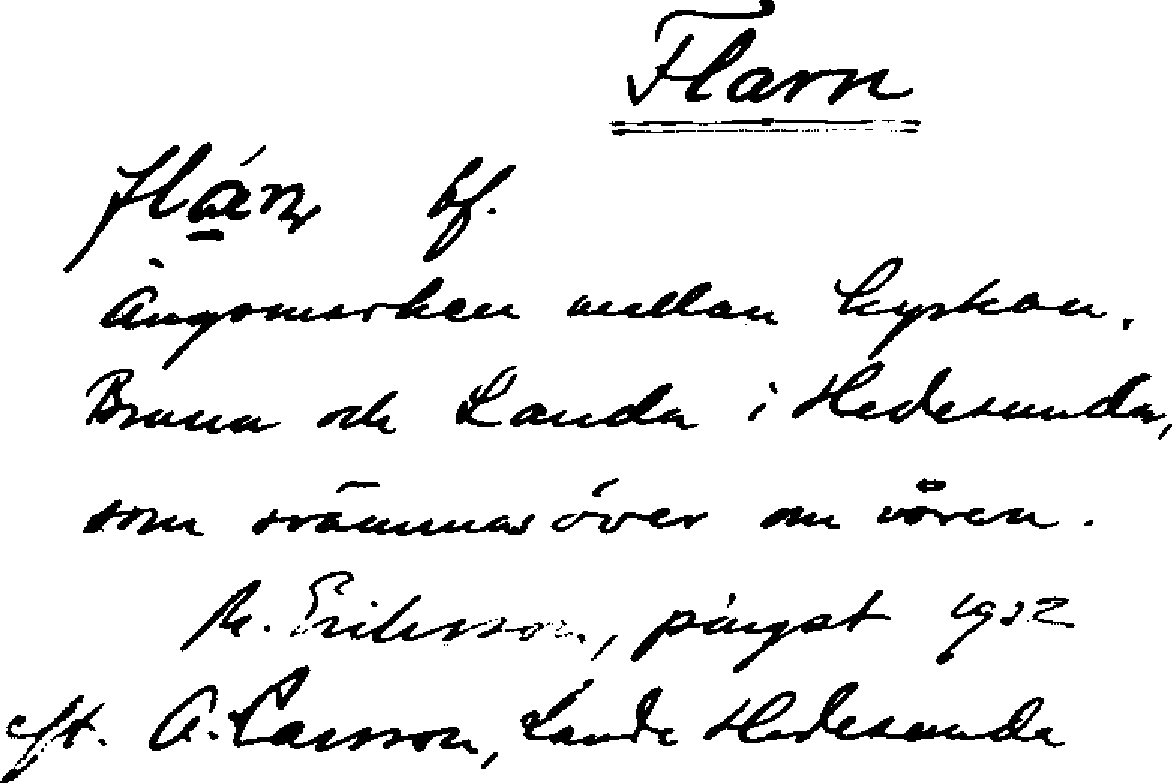 Flarn
flán bf.
Ängsmarken mellan kyrkan,
Bruna och Landa i Hedesunda,
som svämmas över om våren.
M. Eriksson, pingst 1932
eft. A. Larsson, Lande Hedesunda